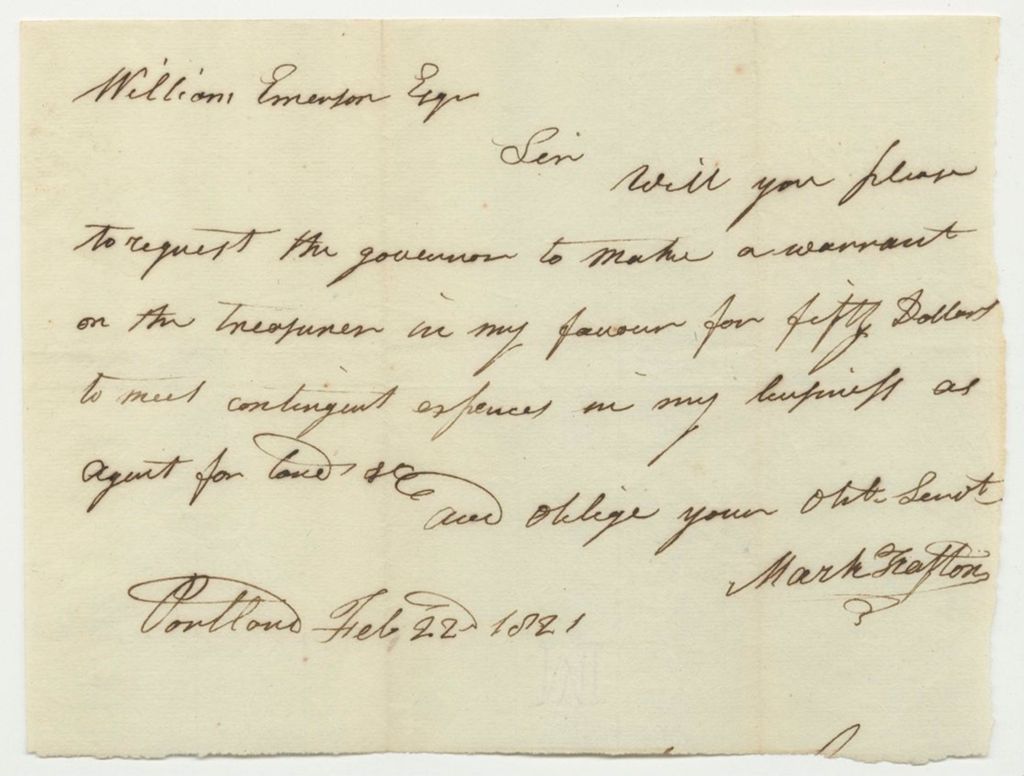 William Emerson Esqr
Sir
Will you please
to request the governor to make a warrant
on the treasurer in my favour for fifty Dollars
to meet contingent expences in my business as
agent for land &c
and oblige your Obt. Servt
Mark Trafton
Portland Feb 22d 1821